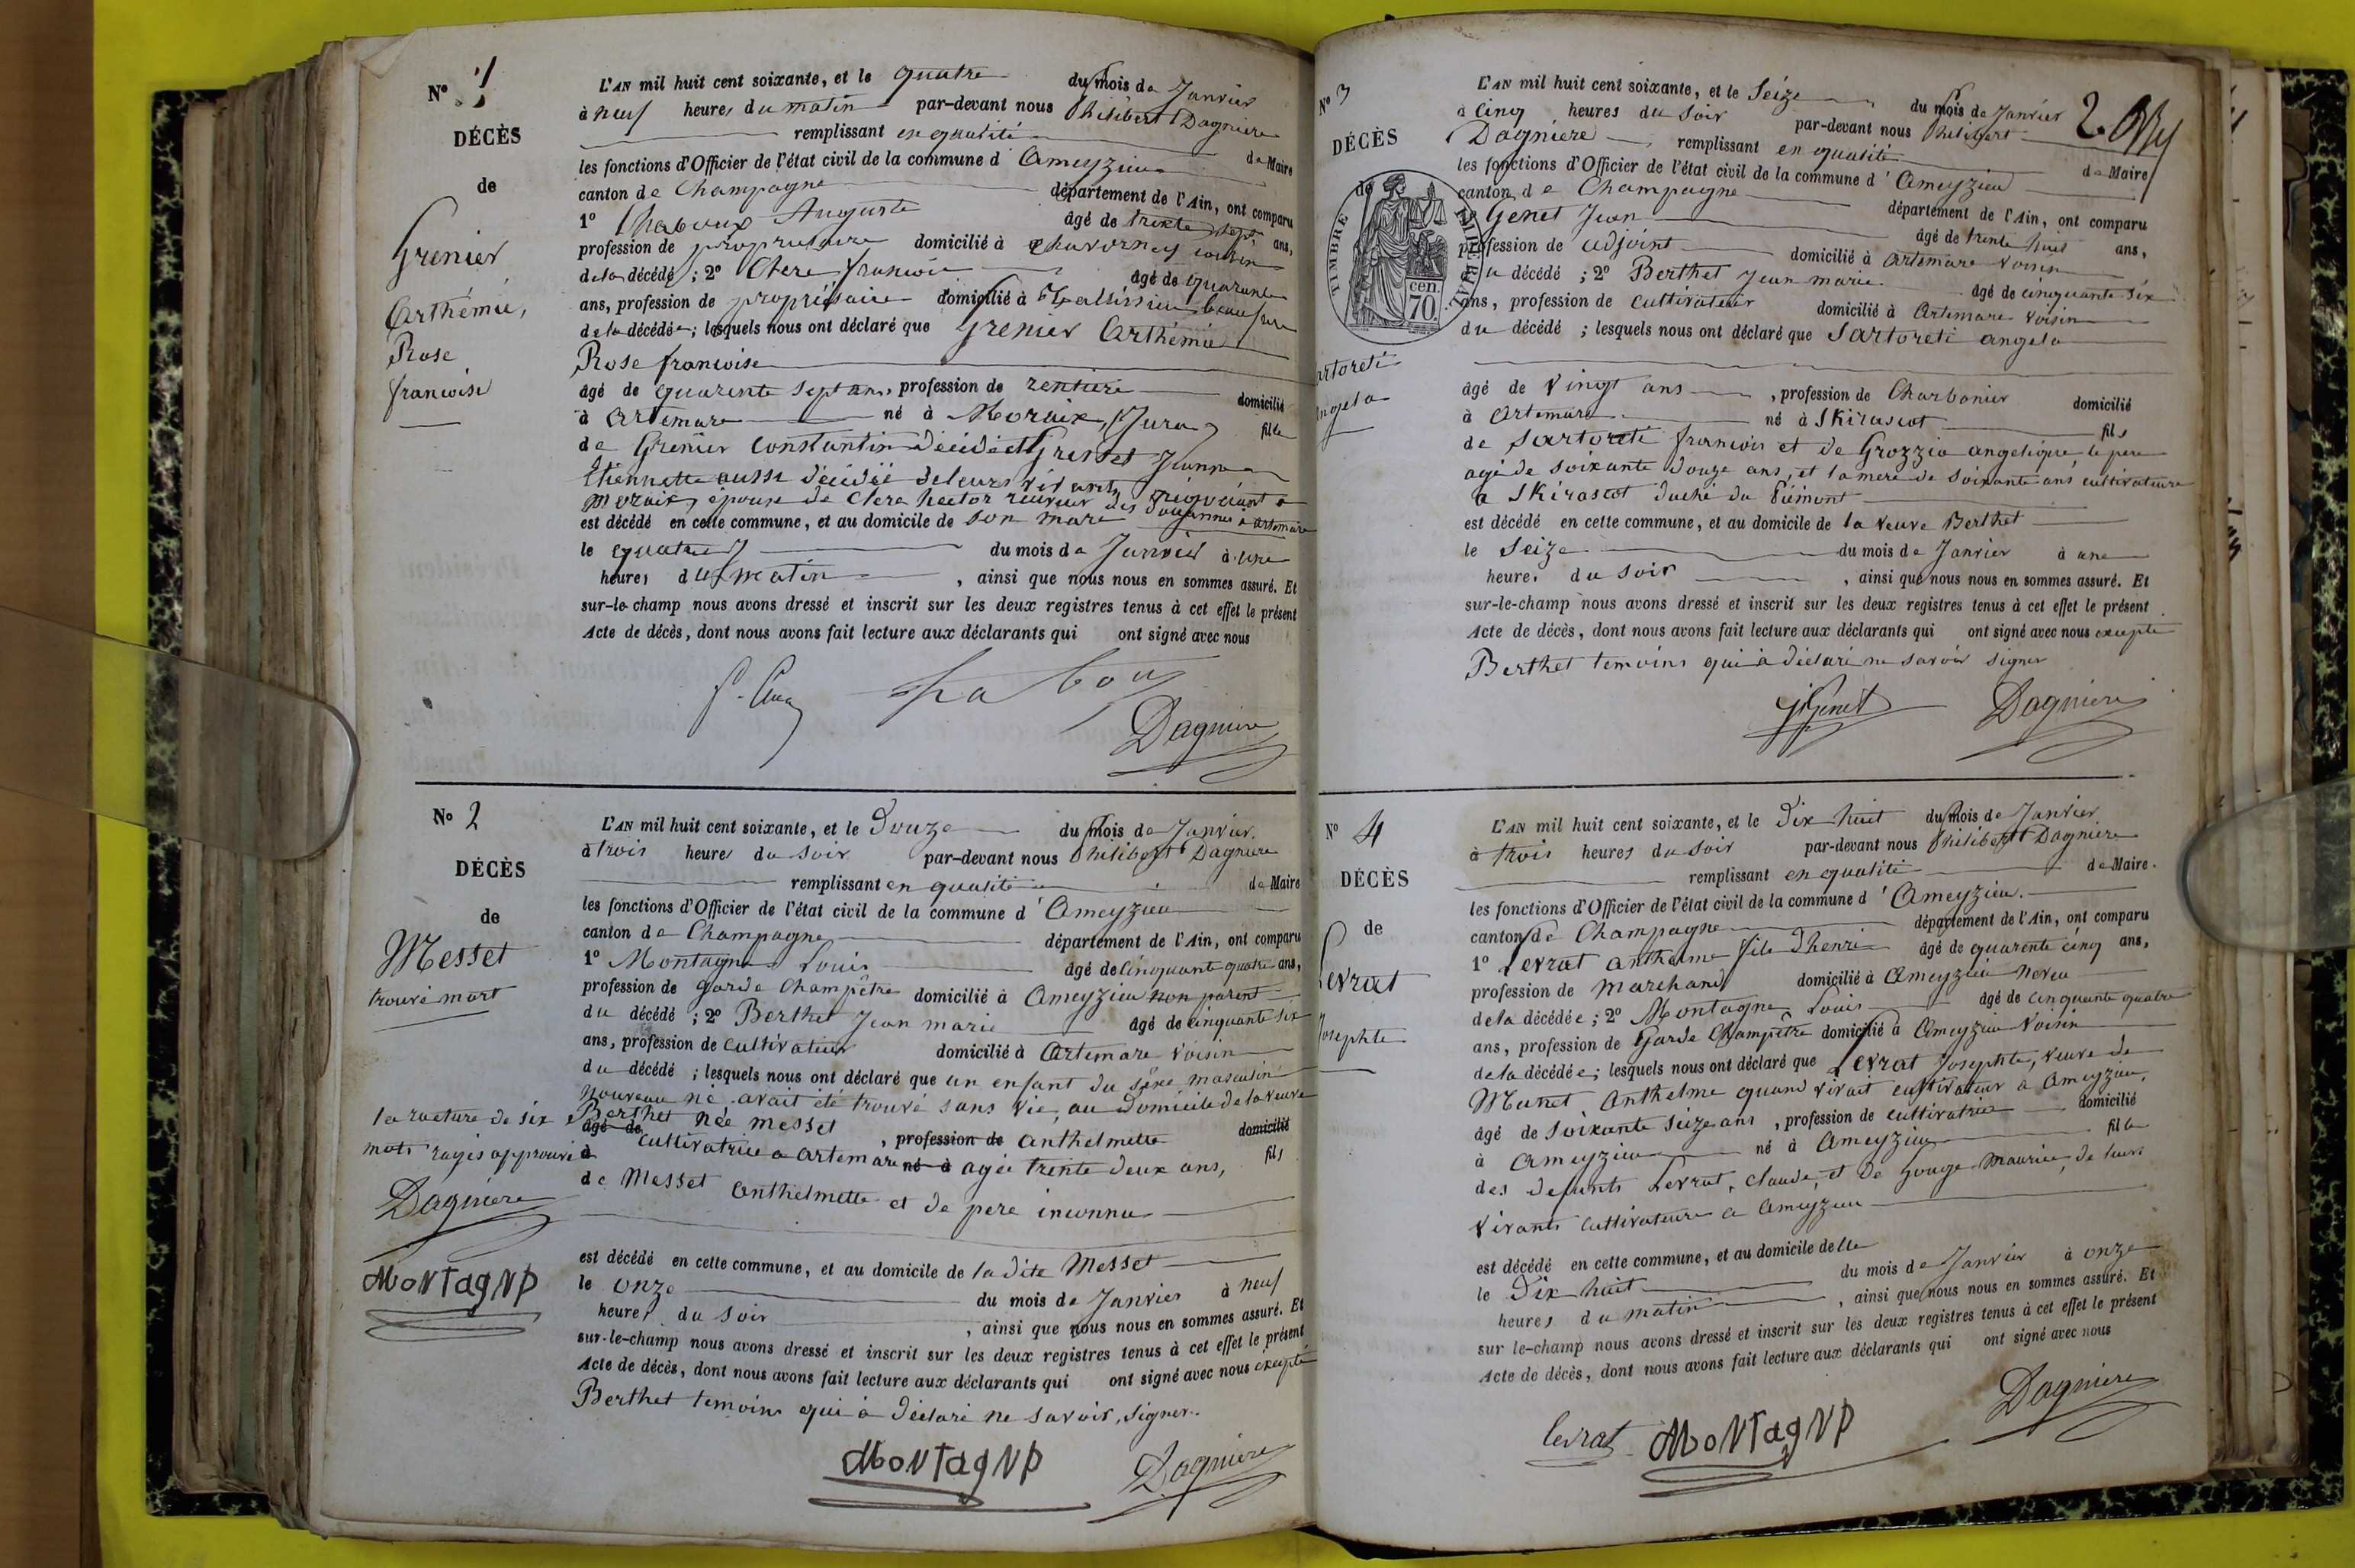 N° 1
DÉCÈS
de
Grenier
Arthémie,
Rose
francoise
L'AN mil huit cent soixante, et le quatre du mois de Janvier
à neuf heures du matin par-devant nous Philibert Dagniere
remplissant en qualité de Maire
les fonctions d'Officier de l'état civil de la commune d'Ameyzieu
canton de Champagne département de l'Ain, ont comparu
1° Chaboux Auguste âgé de trente sept ans,
profession de propriétaire domicilié à Chavornay cousin
de la décédé; 2° Clerc francois âgé de quarante
ans, profession de propriétaire domicilié à beaufrere
de la décédée; lesquels nous ont déclaré que Grenier Arthémie
Rose francoise
âgé de quarente sept ans, profession de rentiere domicilié
à Artemare né à Moraix, (Jura) fille
de Grenier Constantin décédé et Grisset Jeanne
Etiennette aussi décédée de leurs vivants négociant a
Moraix, épouse de Clerc hector receveur des douannes à artemare
est décédé en cette commune, et au domicile de son mari
le quatre du mois de Janvier à une
heures du matin, ainsi que nous nous en sommes assuré. Et
sur-le-champ nous avons dressé et inscrit sur les deux registres tenus à cet effet le présent
Acte de décès, dont nous avons fait lecture aux déclarants qui ont signé avec nous
Chaboux
Dagniere
N° 2
DÉCÈS
de
Messet
trouvé mort
la rature de six
mots rayés approuvé
Dagniere
MoNTagNP
L'AN mil huit cent soixante, et le Douze du mois de Janvier
à trois heures du soir par-devant nous Philibert Dagniere
remplissant en qualité de Maire
les fonctions d'Officier de l'état civil de la commune d'Ameyzieu
canton de Champagne département de l'Ain, ont comparu
1° Montagne Louis âgé de cinquante quatre ans,
profession de garde Champêtre domicilié à Ameyzieu non parent
du décédé; 2° Berthet Jean marie âgé de cinquante six
ans, profession de cultivateur domicilié à Artemare voisin
du décédé; lesquels nous ont déclaré que un enfant du sexe masculin
nouveau né avait été trouvé sans vie, au domicile de la veuve
Berthet née messet
âgé de , profession de anthelmette domicilié
à cultivatrice a artemare né à agée trente deux ans, fils
de Messet anthelmette et de pere inconnu
est décédé en cette commune, et au domicile de la dite Messet
le onze du mois de Janvier à neuf
heures du soir, ainsi que nous nous en sommes assuré. Et
sur-le-champ nous avons dressé et inscrit sur les deux registres tenus à cet effet le présent
Acte de décès, dont nous avons fait lecture aux déclarants qui ont signé avec nous excepté
Berthet temoins qui à déclaré ne savoir, signer.
MoNTagNP
Dagniere
N° 3
DÉCÈS
de
TIMBRE IMPERIAL
70 cen.
artoreti
ngela
L'AN mil huit cent soixante, et le Seize du mois de Janvier
à cinq heures du soir par-devant nous Philibert
Dagniere remplissant en qualité de Maire
les fonctions d'Officier de l'état civil de la commune d'Ameyzieu
canton de Champagne département de l'Ain, ont comparu
Genet Jean âgé de trente huit ans,
profession de adjoint domicilié à Artemare voisin
du décédé; 2° Berthet Jean marie âgé de cinquante six
ans, profession de cultivateur domicilié à Artemare voisin
du décédé; lesquels nous ont déclaré que Sartoreti angela
âgé de vingt ans, profession de Charbonier domicilié
à Artemare né à Skirascot fils
de Sartoreti francois et de Grozzia angelique, le pere
agé de soixante douze ans, et la mere de soixante ans, cultivateure
a Skirascot duché du Piémont
est décédé en cette commune, et au domicile de la veuve Berthet
le Seize du mois de Janvier à une
heure du soir, ainsi que nous nous en sommes assuré. Et
sur-le-champ nous avons dressé et inscrit sur les deux registres tenus à cet effet le présent
Acte de décès, dont nous avons fait lecture aux déclarants qui ont signé avec nous excepté
Berthet temoins qui à déclaré ne savoir signer
JGenet
Dagniere
N° 4
DÉCÈS
de
Levrat
Josephte
L'AN mil huit cent soixante, et le Dix huit du mois de Janvier
à trois heures du soir par-devant nous Philibert Dagniere
remplissant en qualité de Maire.
les fonctions d'Officier de l'état civil de la commune d'Ameyzieu.
canton de Champagne département de l'Ain, ont comparu
1° Levrat anthelme fils d'henri âgé de quarente cinq ans,
profession de marchand domicilié à Ameyzieu neveu
de la décédée; 2° Montagne Louis âgé de cinquante quatre
ans, profession de Garde Champêtre domicilié à Ameyzieu voisin
de la décédée; lesquels nous ont déclaré que Levrat Josephte, veuve de
Munet Anthelme quand vivait cultivateur a Ameyzieu,
âgé de soixante seize ans, profession de cultivatrice domicilié
à Ameyzieu né à Ameyzieu fille
des defunts Levrat, claude, et de Gouge Maurice, de leurs
vivants cultivateurs a Ameyzieu
est décédé en cette commune, et au domicile delle
le Dix huit du mois de Janvier à onze
heures du matin, ainsi que nous nous en sommes assuré. Et
sur le-champ nous avons dressé et inscrit sur les deux registres tenus à cet effet le présent
Acte de décès, dont nous avons fait lecture aux déclarants qui ont signé avec nous
levrat MoNTagNP
Dagniere